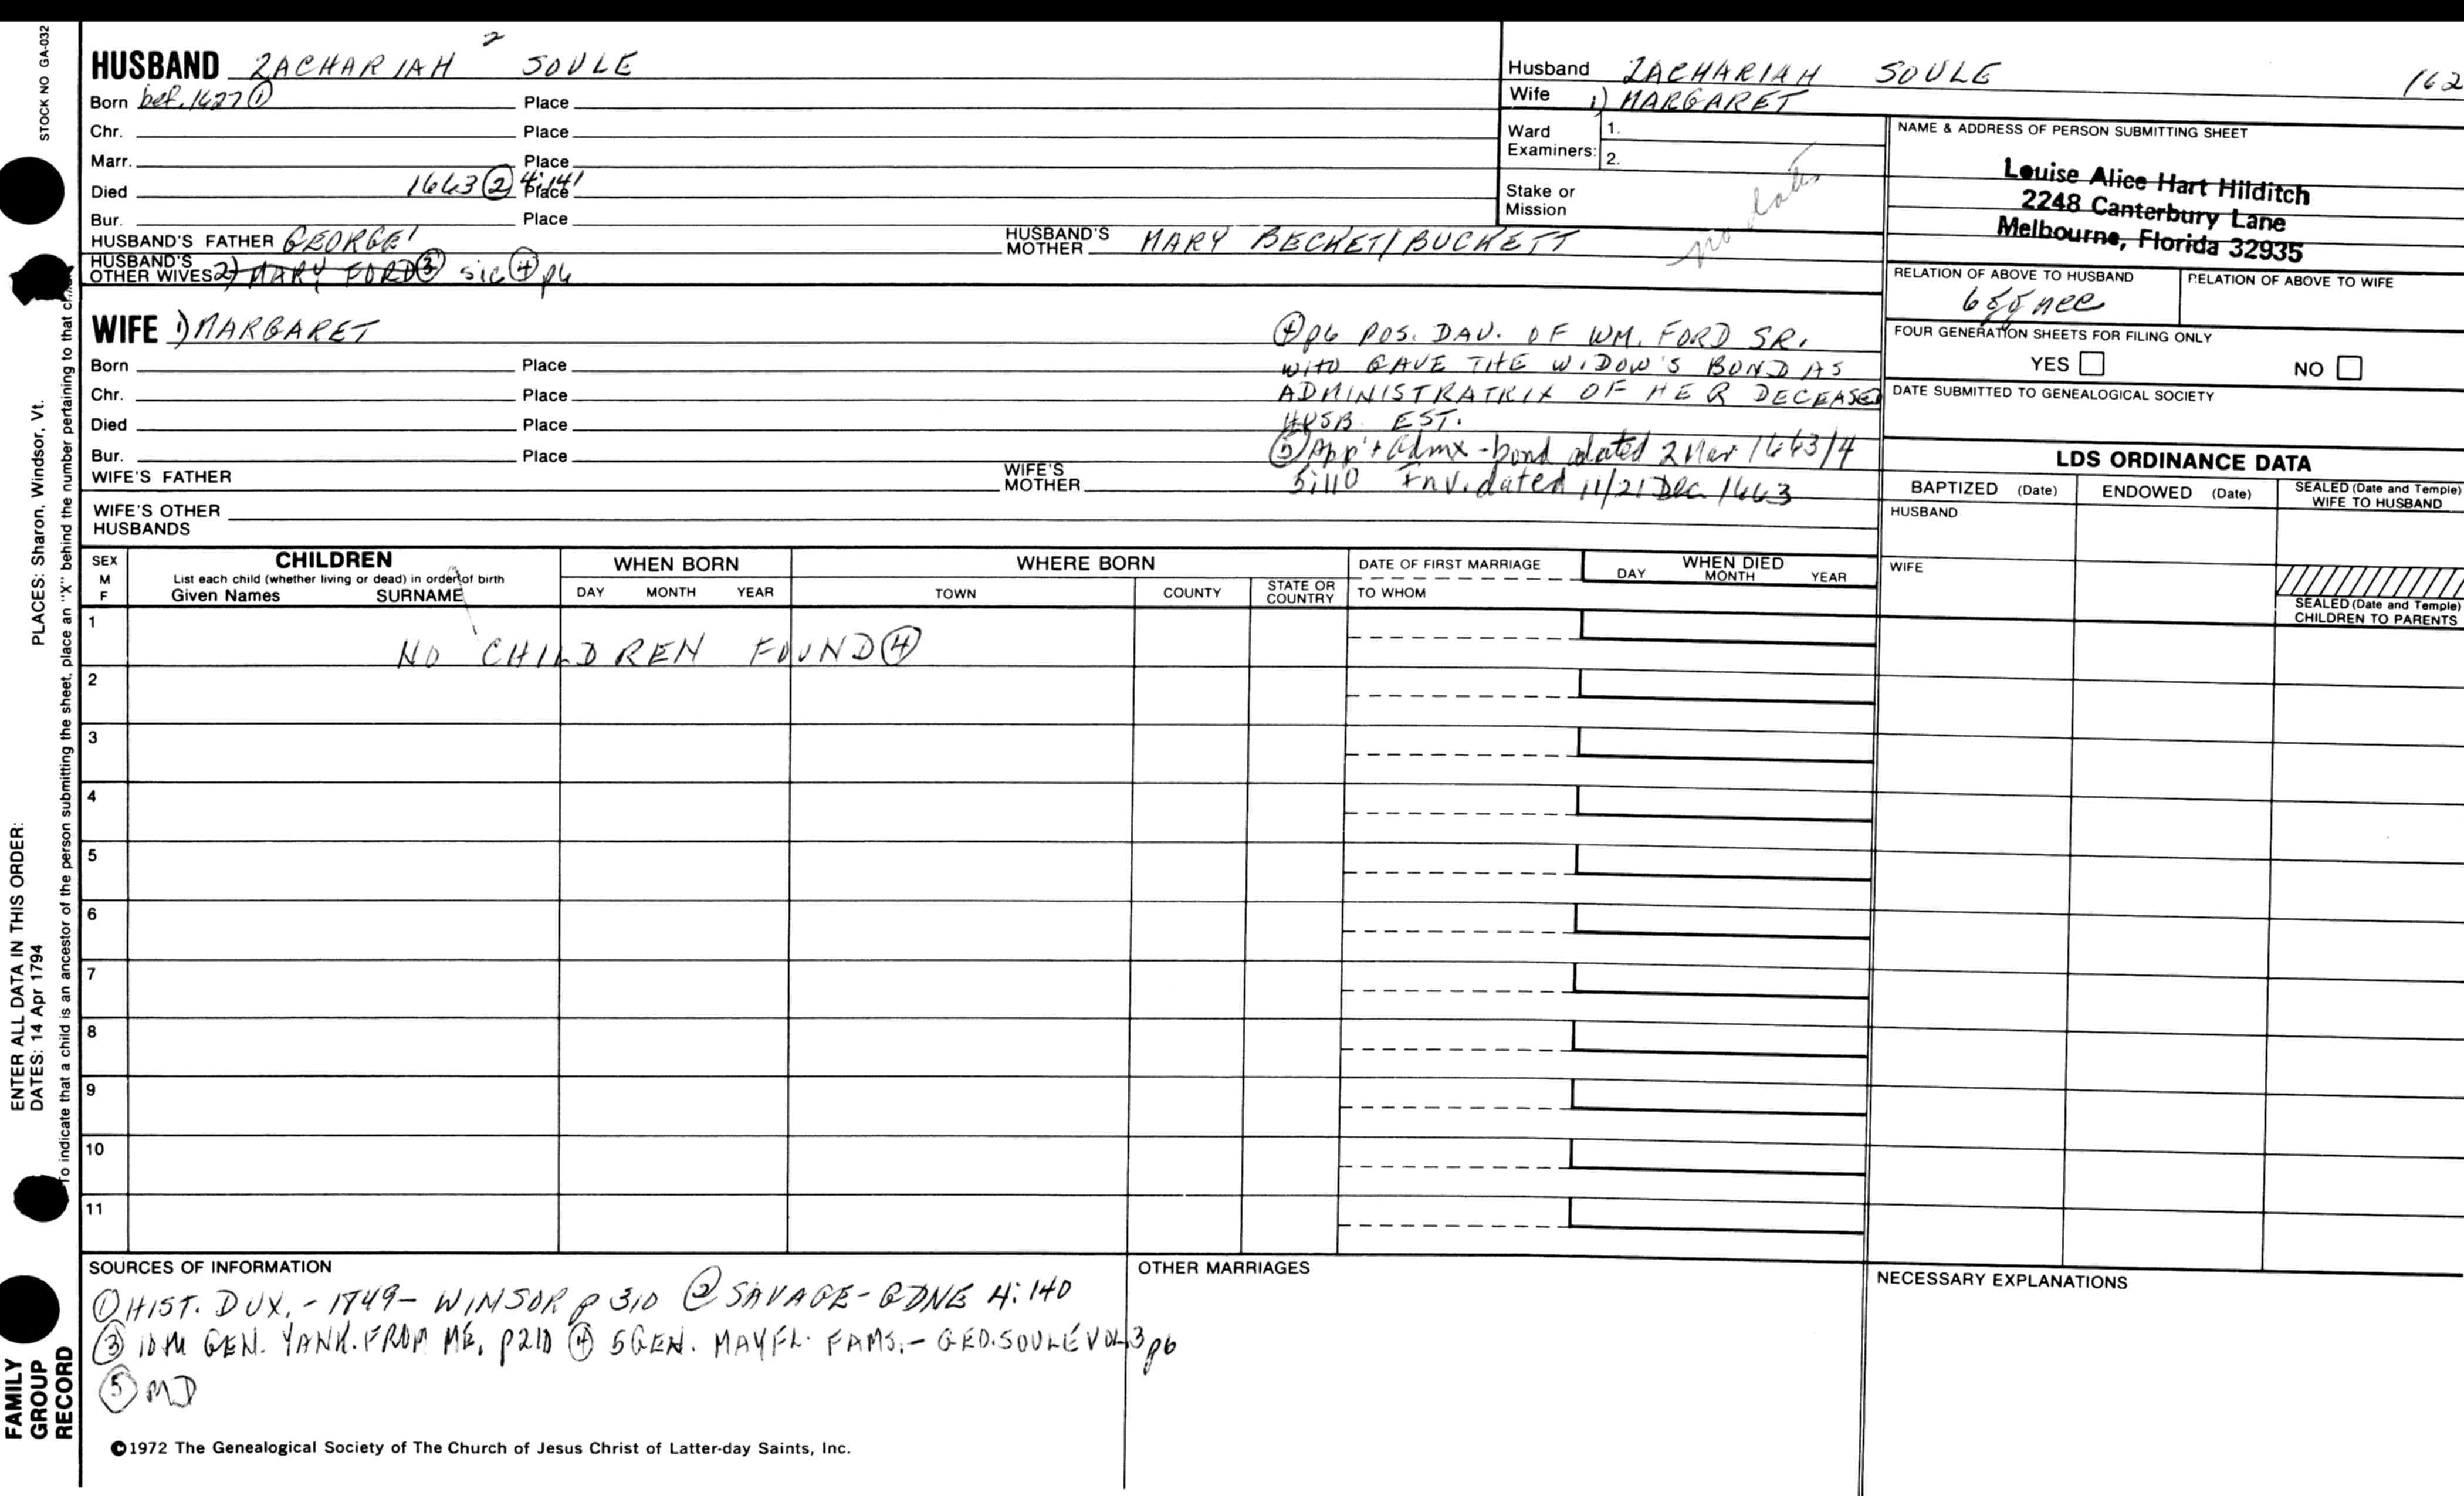 STOCK NO GA-032
HUSBAND ZACHARIAH 2 SOULE
Born bef. 1627 ① Place
Chr. Place
Marr. Place
Died 1663 ② 4:141 Place
Bur. Place
HUSBAND'S FATHER GEORGE 1 HUSBAND'S MOTHER MARY BECKET/BUCKETT
HUSBAND'S OTHER WIVES 2) MARY FORD ③ sic ④ p6
WIFE 1) MARGARET
Born Place
Chr. Place
Died Place
Bur. Place
WIFE'S FATHER WIFE'S MOTHER
WIFE'S OTHER HUSBANDS
④ p6 POS. DAV. OF WM. FORD SR.
WHO GAVE THE WIDOW'S BOND AS
ADMINISTRATRIX OF HER DECEASED
HUSB. EST.
⑤ App't Admx - bond dated 2 Mar 1663/4
5:110 Inv. dated 11/21 Dec 1663
Husband ZACHARIAH SOULE 162
Wife 1) MARGARET
Ward Examiners: 1.
2.
Stake or Mission
no
NAME & ADDRESS OF PERSON SUBMITTING SHEET
Louise Alice Hart Hilditch
2248 Canterbury Lane
Melbourne, Florida 32935
RELATION OF ABOVE TO HUSBAND RELATION OF ABOVE TO WIFE
FOUR GENERATION SHEETS FOR FILING ONLY
YES NO
DATE SUBMITTED TO GENEALOGICAL SOCIETY
LDS ORDINANCE DATA
BAPTIZED (Date) ENDOWED (Date) SEALED (Date and Temple) WIFE TO HUSBAND
HUSBAND
WIFE
SEALED (Date and Temple) CHILDREN TO PARENTS
SEX M F
CHILDREN
List each child (whether living or dead) in order of birth
Given Names SURNAME
WHEN BORN
DAY MONTH YEAR
WHERE BORN
TOWN COUNTY STATE OR COUNTRY
DATE OF FIRST MARRIAGE
TO WHOM
WHEN DIED
DAY MONTH YEAR
1
NO CHILDREN FOUND ④
2
3
4
5
6
7
8
9
10
11
SOURCES OF INFORMATION
① HIST. DUX. - 1849 - WINSOR p 310 ② SAVAGE - GDNE 4:140
③ 10M GEN. YANK. FROM ME, p210 ④ 5GEN. MAYFL. FAMS. - GEO. SOULE VOL 3 p6
⑤ MD
OTHER MARRIAGES
NECESSARY EXPLANATIONS
©1972 The Genealogical Society of The Church of Jesus Christ of Latter-day Saints, Inc.
PLACES: Sharon, Windsor, Vt.
To indicate that a child is an ancestor of the person submitting the sheet, place an "X" behind the number pertaining to that
ENTER ALL DATA IN THIS ORDER:
DATES: 14 Apr 1794
FAMILY
GROUP
RECORD